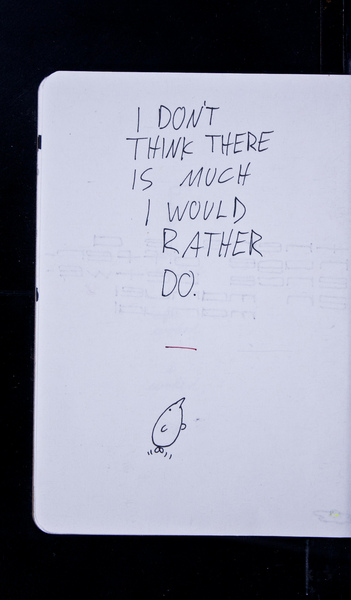 I DON'T
THINK THERE
IS MUCH
I WOULD
RATHER
DO.